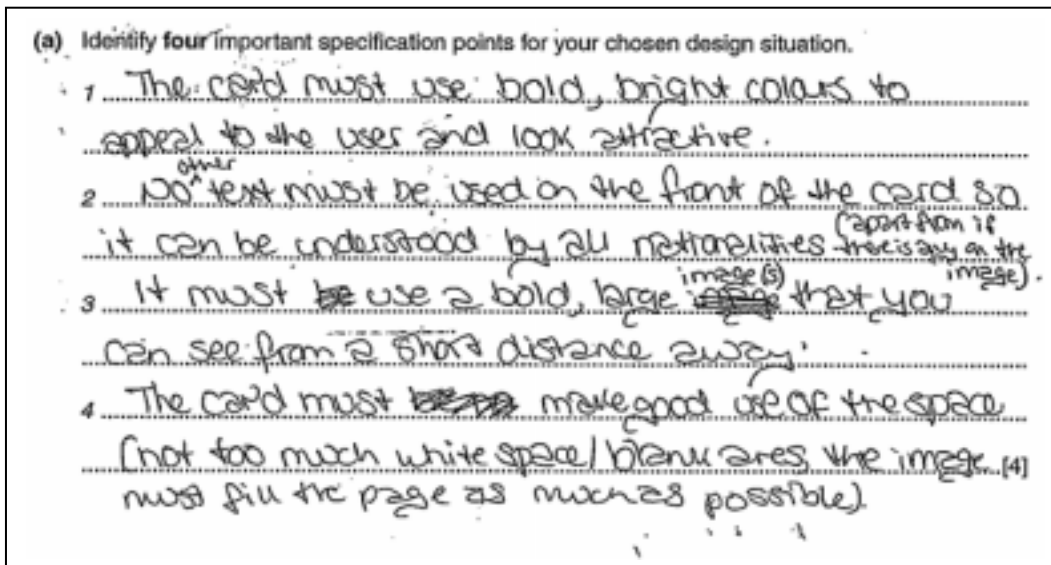 (a) Identify four important specification points for your chosen design situation.
1 The card must use bold, bright colours to
appeal to the user and look attractive.
2 No other text must be used on the front of the card so
it can be understood by all nationalities (apart from if there is any on the image).
3 It must use a bold, large image(s) that you
can see from a short distance away.
4 The card must make good use of the space
(not too much white space/blank ares, the image [4]
must fill the page as much as possible).